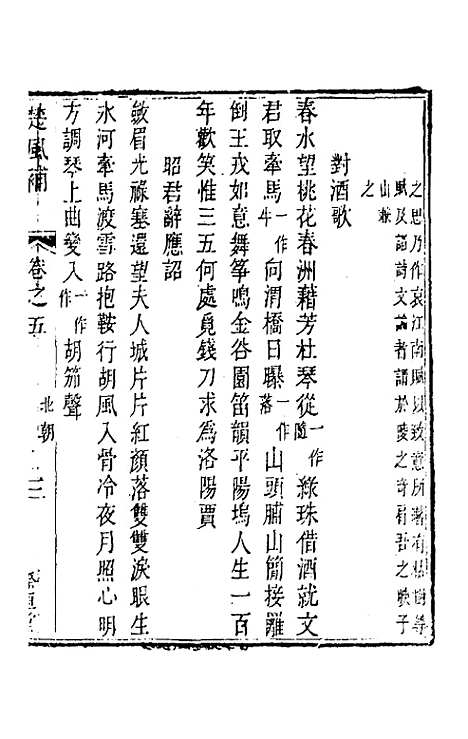 之思乃作哀江南賦以致意所著有思舊等
賦及諸詩文論者謂於陵之子有吾之映子
山兼
之
對酒歌
春水望桃花春洲藉芳杜琴從一作隨綠珠借酒就文
君取牽馬一作牛向渭橋日曝一作落山頭脯山簡接䍦
倒王戎如意舞箏鳴金谷園笛韻平陽塢人生一百
年歡笑惟三五何處覓錢刀求為洛陽賈
昭君辭應詔
斂眉光祿塞還望夫人城片片紅顏落雙雙淚眼生
氷河牽馬渡雪路抱鞍行胡風入骨冷夜月照心明
方調琴上曲變入一作作胡笳聲
楚風補
卷之五
北朝